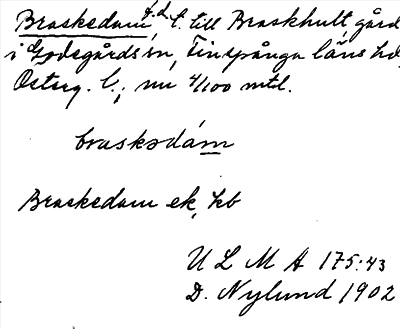 Braskedam, f.d. t. till Braskhult, gård
i Godegårds sn, Finspånga läns hd,
Österg. l.; nu 4/100 mtl.
braskədám
Braskedam ek, kb
U L M A 175:43
D. Nylund 1902